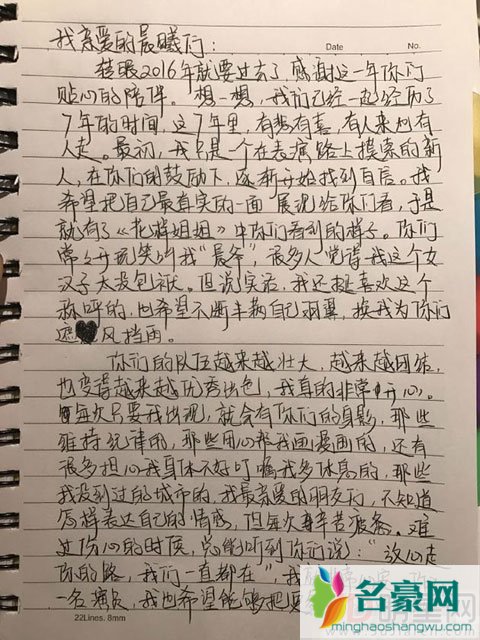 我亲爱的晨曦们：
Date No.
转眼2016年就要过去了感谢这一年你们
贴心的陪伴。想一想，我们已经一起经历了
7年的时间，这7年里，有愁有喜，有人来也有
人走。最初，我只是个在表演路上摸索的新
人，在你们的鼓励下，逐渐开始找到自信。我
希望把自己最真实的一面展现给你们看，于是
就有了《花样姐姐》中你们看到的样子。你们
常常开玩笑叫我“晨爷”，很多人觉得我这个女
汉子太没包袱。但说实话，我还挺喜欢这个
称呼的，也希望不断丰满自己羽翼，换我为你们
遮风挡雨。
你们的队伍越来越壮大，越来越团结，
也变得越来越优秀出色，我真的非常开心。
每次只要我出现，就会有你们的身影，那些
维持纪律的，那些用心帮我画漫画的，还有
很多担心我身体不好叮嘱我多休息的，那些
我没到过的城市的，我最亲爱的朋友们，不知道
怎样表达自己的情感，但每次辛苦疲惫。难
过伤心的时候，总能听到你们说：“放心走
你的路，我们一直都在”，我
一名演员，我也希望能够把
22Lines. 8mm
名豪网
minghaoshangwu.com